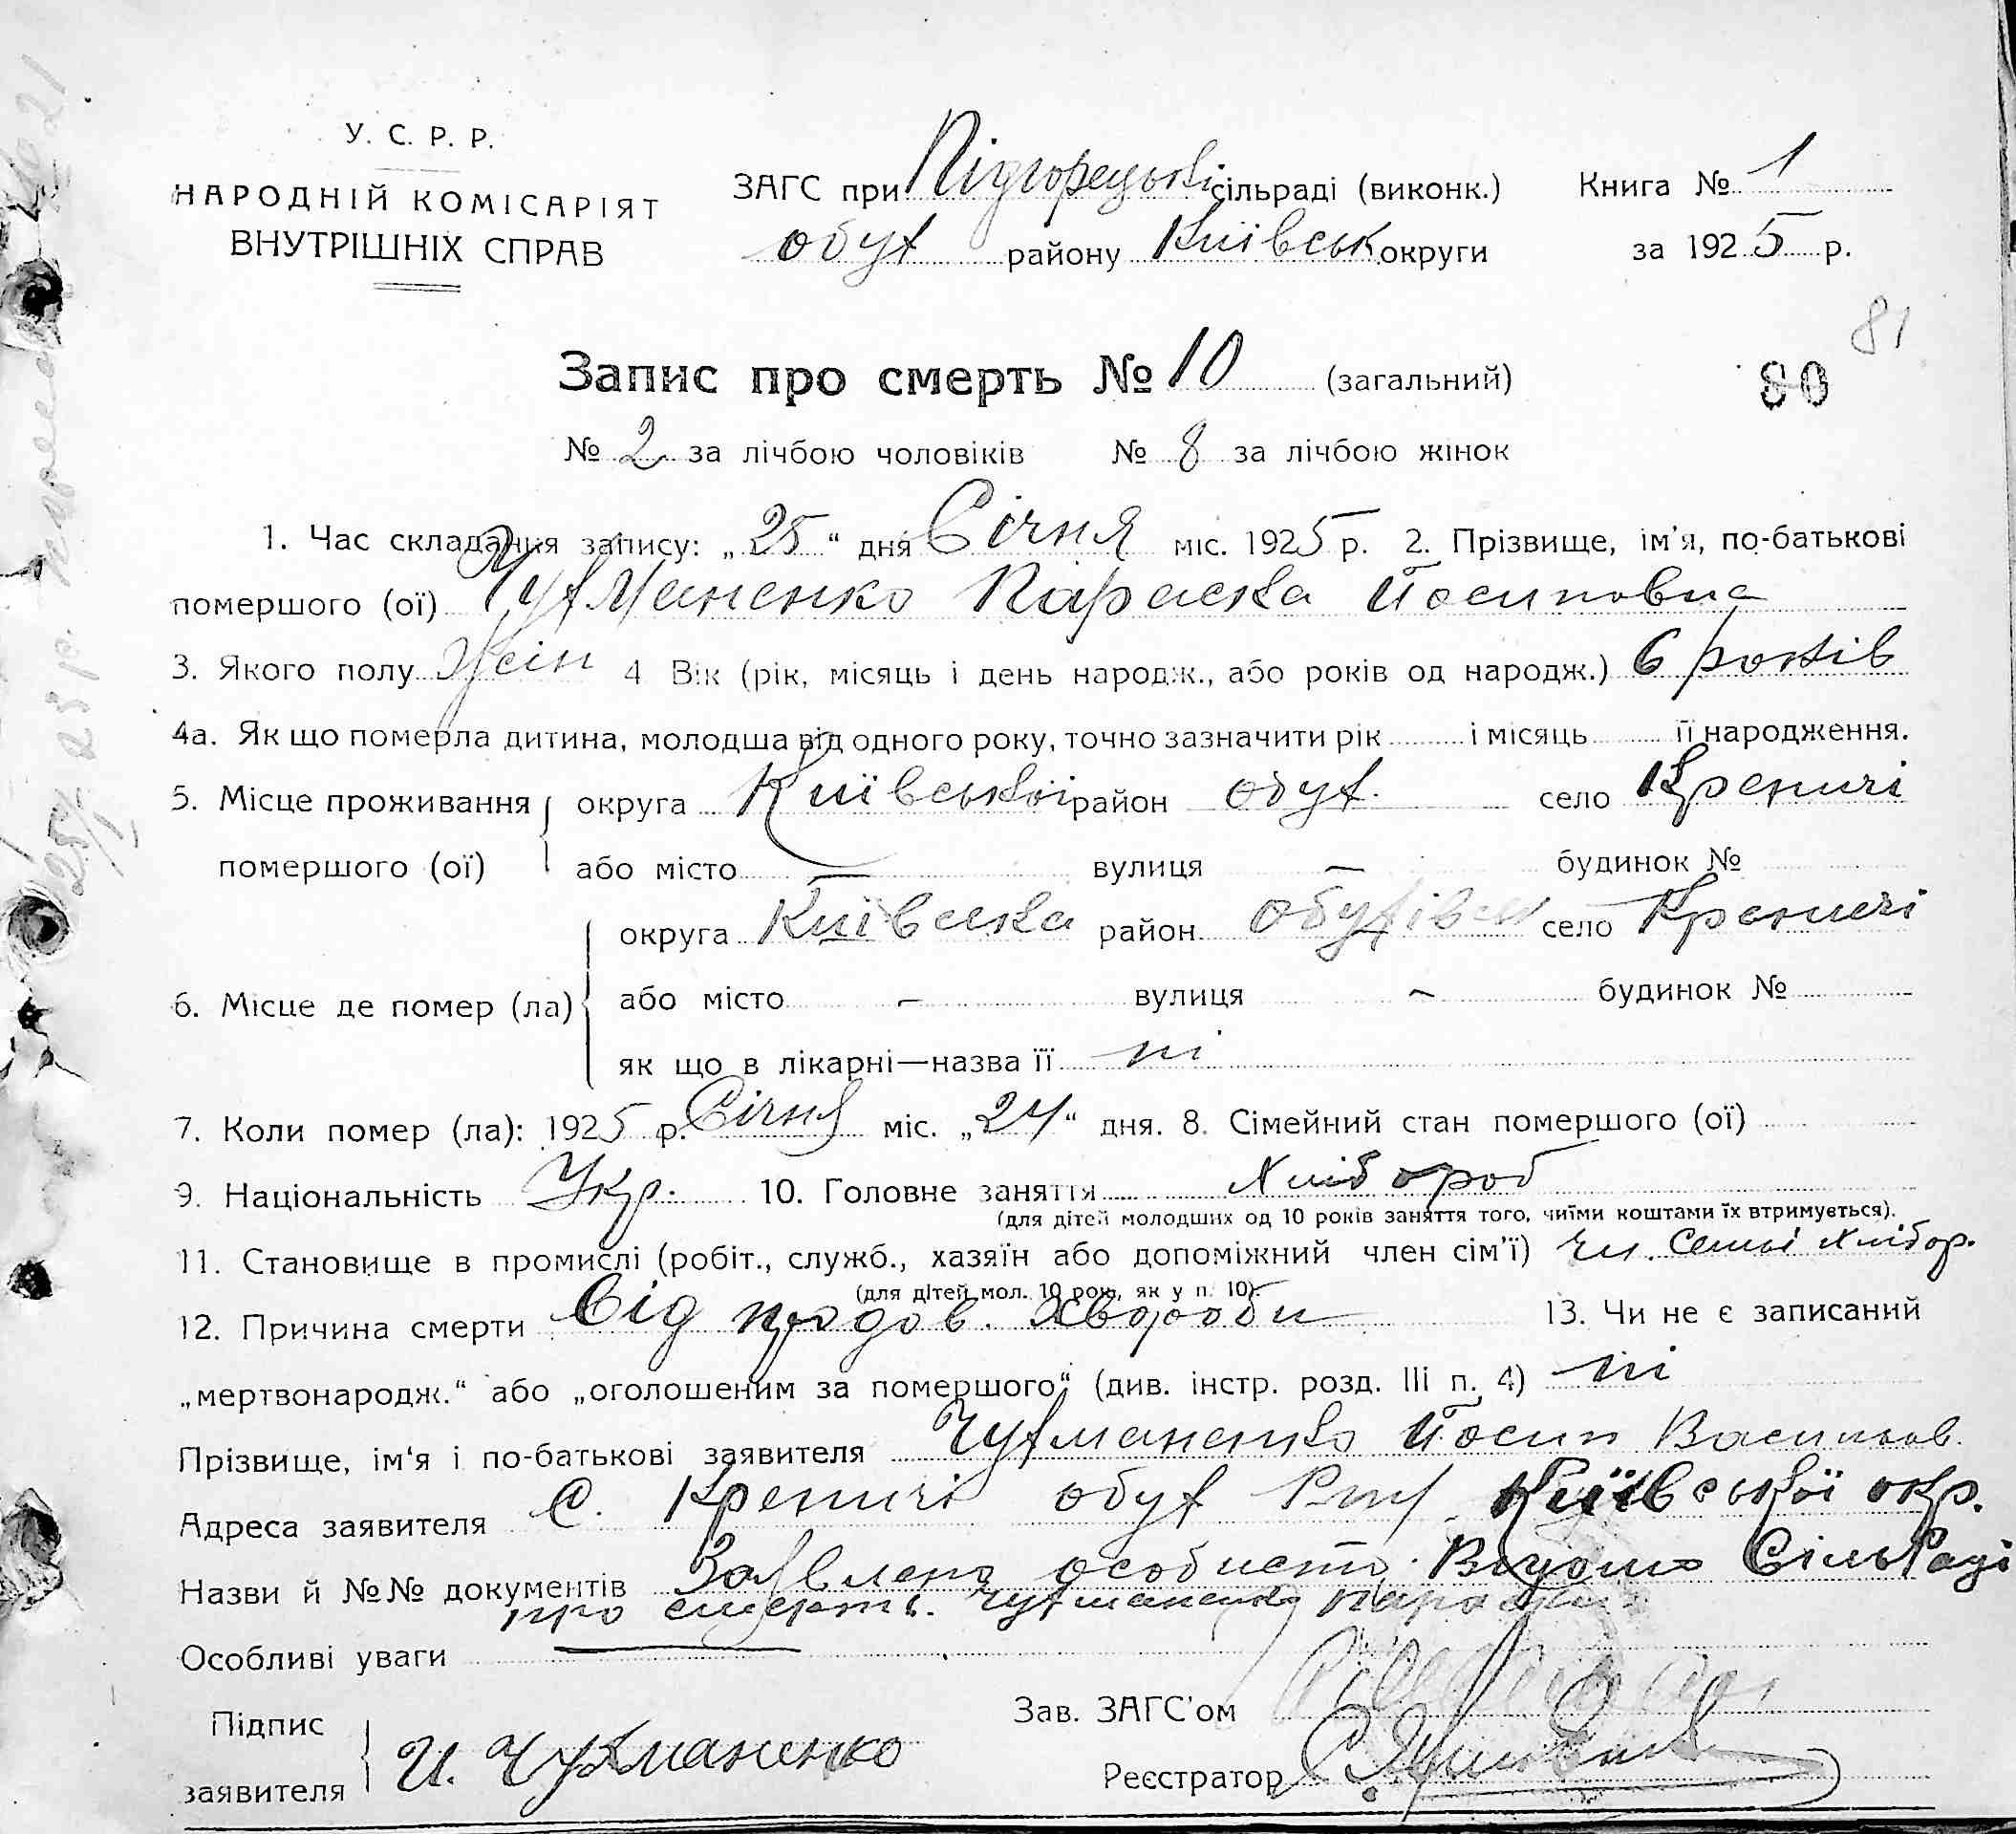 У. С. Р. Р.
НАРОДНІЙ КОМІСАРІЯТ
ВНУТРІШНІХ СПРАВ
ЗАГС при Підгорецькі сільраді (виконк.)
обух району Київськ округи
Книга № 1
за 1925 р.
81
Запис про смерть № 10 (загальний)
80
№ 2 за лічбою чоловіків № 8 за лічбою жінок
1. Час складання запису: „25“ дня Січня міс. 1925 р. 2. Прізвище, ім'я, по-батькові
помершого (ої) Чухманенко Параска Йосиповна
3. Якого полу Жін 4 Вік (рік, місяць і день народж., або років од народж.) 6 років
4а. Як що померла дитина, молодша від одного року, точно зазначити рік і місяць її народження.
5. Місце проживання округа Київської район обух. село Креничі
помершого (ої) або місто — вулиця — будинок №
округа Київська район Обухівськ село Креничі
6. Місце де помер (ла) або місто – вулиця ~ будинок №
як що в лікарні—назва її ні
7. Коли помер (ла): 1925 р. Січня міс. „24“ дня. 8. Сімейний стан помершого (ої)
9. Національність Укр. 10. Головне заняття Хлібороб
(для дітей молодших од 10 років заняття того, чиїми коштами їх втримується).
11. Становище в промислі (робіт., служб., хазяїн або допоміжний член сім'ї) Чл. семьі хлібор.
(для дітей мол. 10 рок, як у п. 10).
12. Причина смерти Від продов. хвороби 13. Чи не є записаний
„мертвонародж.“ або „оголошеним за помершого“ (див. інстр. розд. III п. 4) ні
Прізвище, ім'я і по-батькові заявителя Чухманенко Йосип Васильов.
Адреса заявителя С. Креничі обух Київської окр.
Назви й №№ документів Заявлено особисто. Відомо Сільраді
про смерть. Чухманенко Параски
Особливі уваги
Підпис
заявителя И. Чухманенко
Зав. ЗАГС'ом
Реєстратор